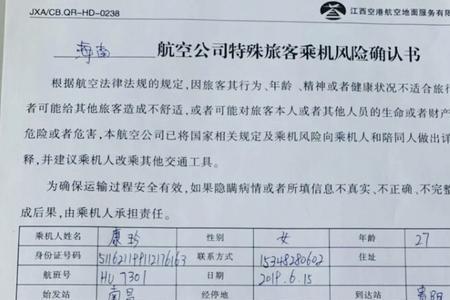 JXA/CB.QR-HD-0238
江西空港航空地面服务有限
海南 航空公司特殊旅客乘机风险确认书
根据航空法律法规的规定，因旅客其行为、年龄、精神或者健康状况不适合旅行
者可能给其他旅客造成不舒适，或者可能对旅客本人或者其他人员的生命或者财产
危险或者危害，本航空公司已将国家相关规定及乘机风险向乘机人和陪同人做出详
释，并建议乘机人改乘其他交通工具。
为确保运输过程安全有效，如果隐瞒病情或者所填信息不真实、不正确、不完整
成后果，由乘机人承担责任。
乘机人姓名 康珍 性别 女 年龄 27
身份证号码 511621199112176163 联系方式 15348280602 住址
航班号 HU7301 日期 2019.6.15
始发站 南昌 经停地 到达站